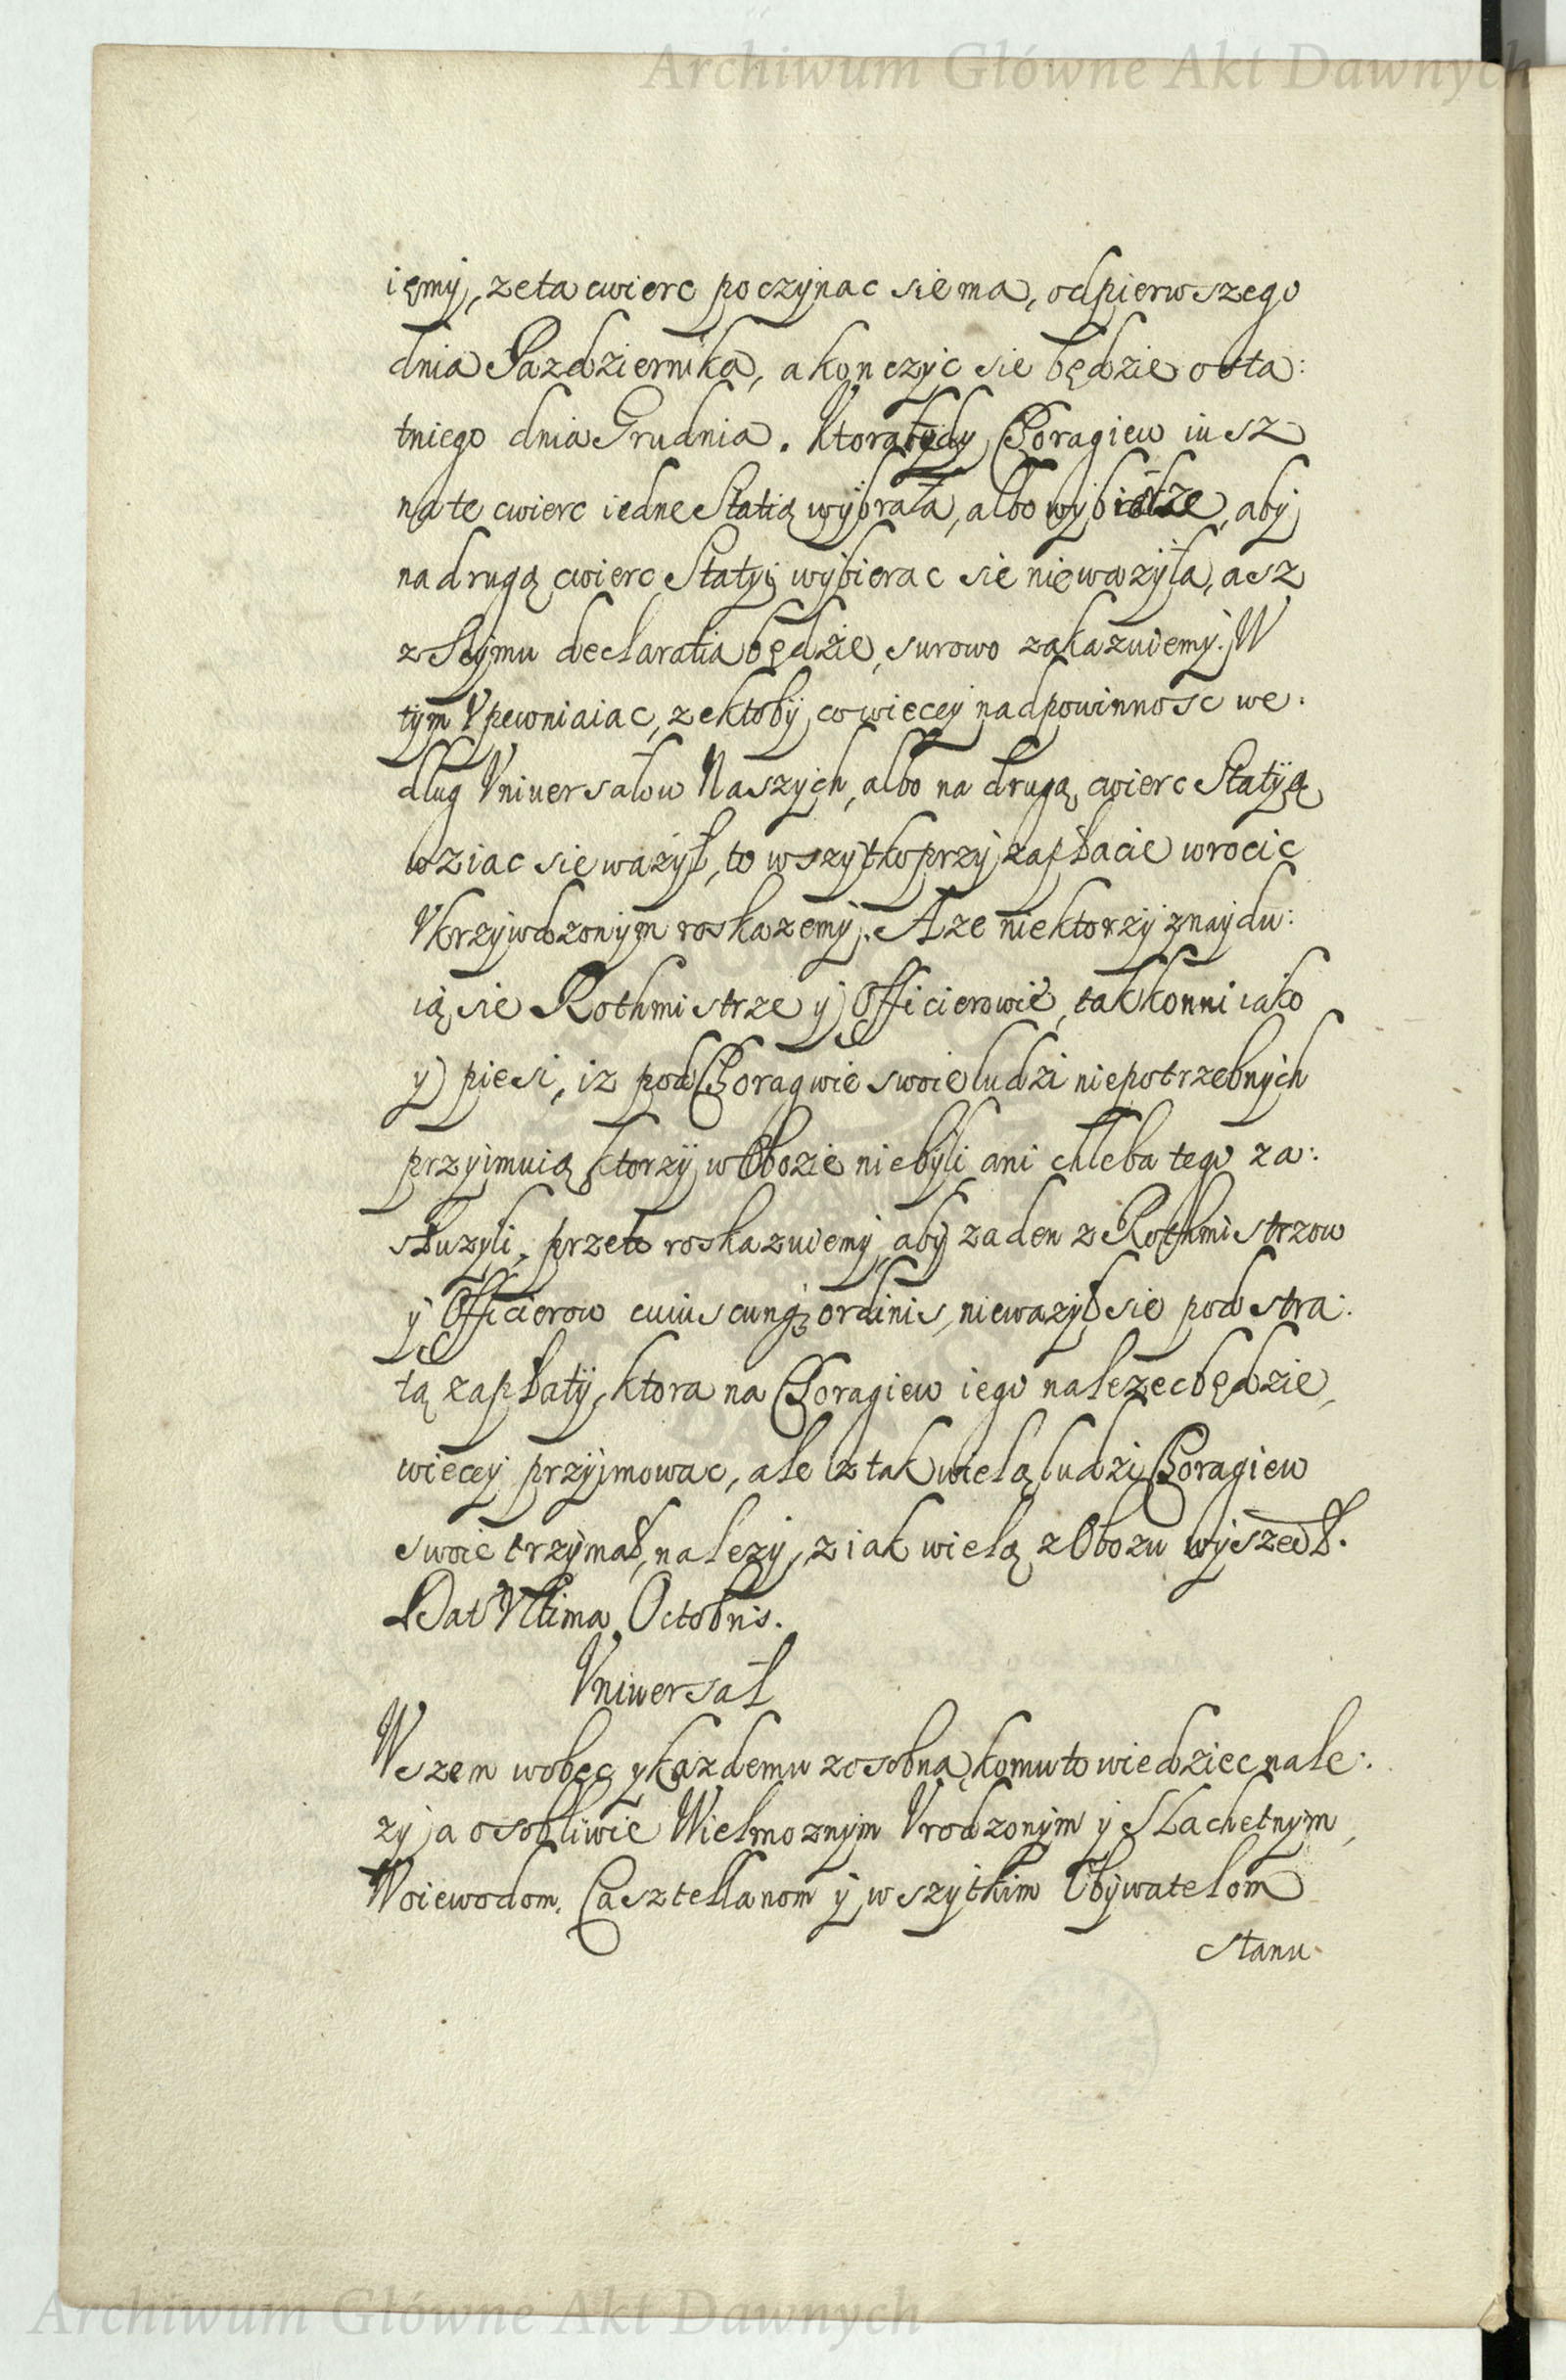 Archiwum Główne Akt Dawnych
ięmy, ze ta cwierc poczynac sie ma, od pierwszego
dnia Pazdziernika, a konczyc sie będzie osta:
tniego dnia Grudnia. Ktora tedy Choragiew iusz
na te cwierc iedne Statią wybrała, albo wybierze, aby
na drugą cwierc Statyi wybierac sie nie wazyła, asz
z Seymu declaratia będzie, surowo zakazuiemy. W
tym Vpewniaiac, ze ktoby co wiecey nad powinnosc we:
dlug Vniuersałow Naszych, albo na drugą cwierc Statyą
wziac sie wazył, to wszytko przy zapłacie wrocic
Vkrzywdzonym roskazemy. A ze niektorzy znaydu:
ią sie Rothmistrze y Officierowie, tak konni iako
y piesi, iz pod Choragwie swoie ludzi niepotrzebnych
przyimuią ktorzy w Obozie nie byli ani chleba tego za:
słuzyli, przeto roskazuiemy, aby zaden z Rothmistrzow
y Officierow cuiuscunq ordinis, nie wazył sie pod stra:
tą zapłaty, ktora na Choragiew iego nalezec będzie,
wiecey przyimowac, ale z tak wielą ludzi Choragiew
swoie trzymał, nalezy, z iak wielą z Obozu wyszedł.
Dat Vltima Octobris.
Vniwersał
Wszem wobec y kazdemu zosobna, komu to wiedziec nale:
zy, a osobliwie Wielmoznym Vrodzonym y Slachetnym,
Woiewodom, Casztellanom y wszytkim Obywatelom
stanu
Archiwum Główne Akt Dawnych